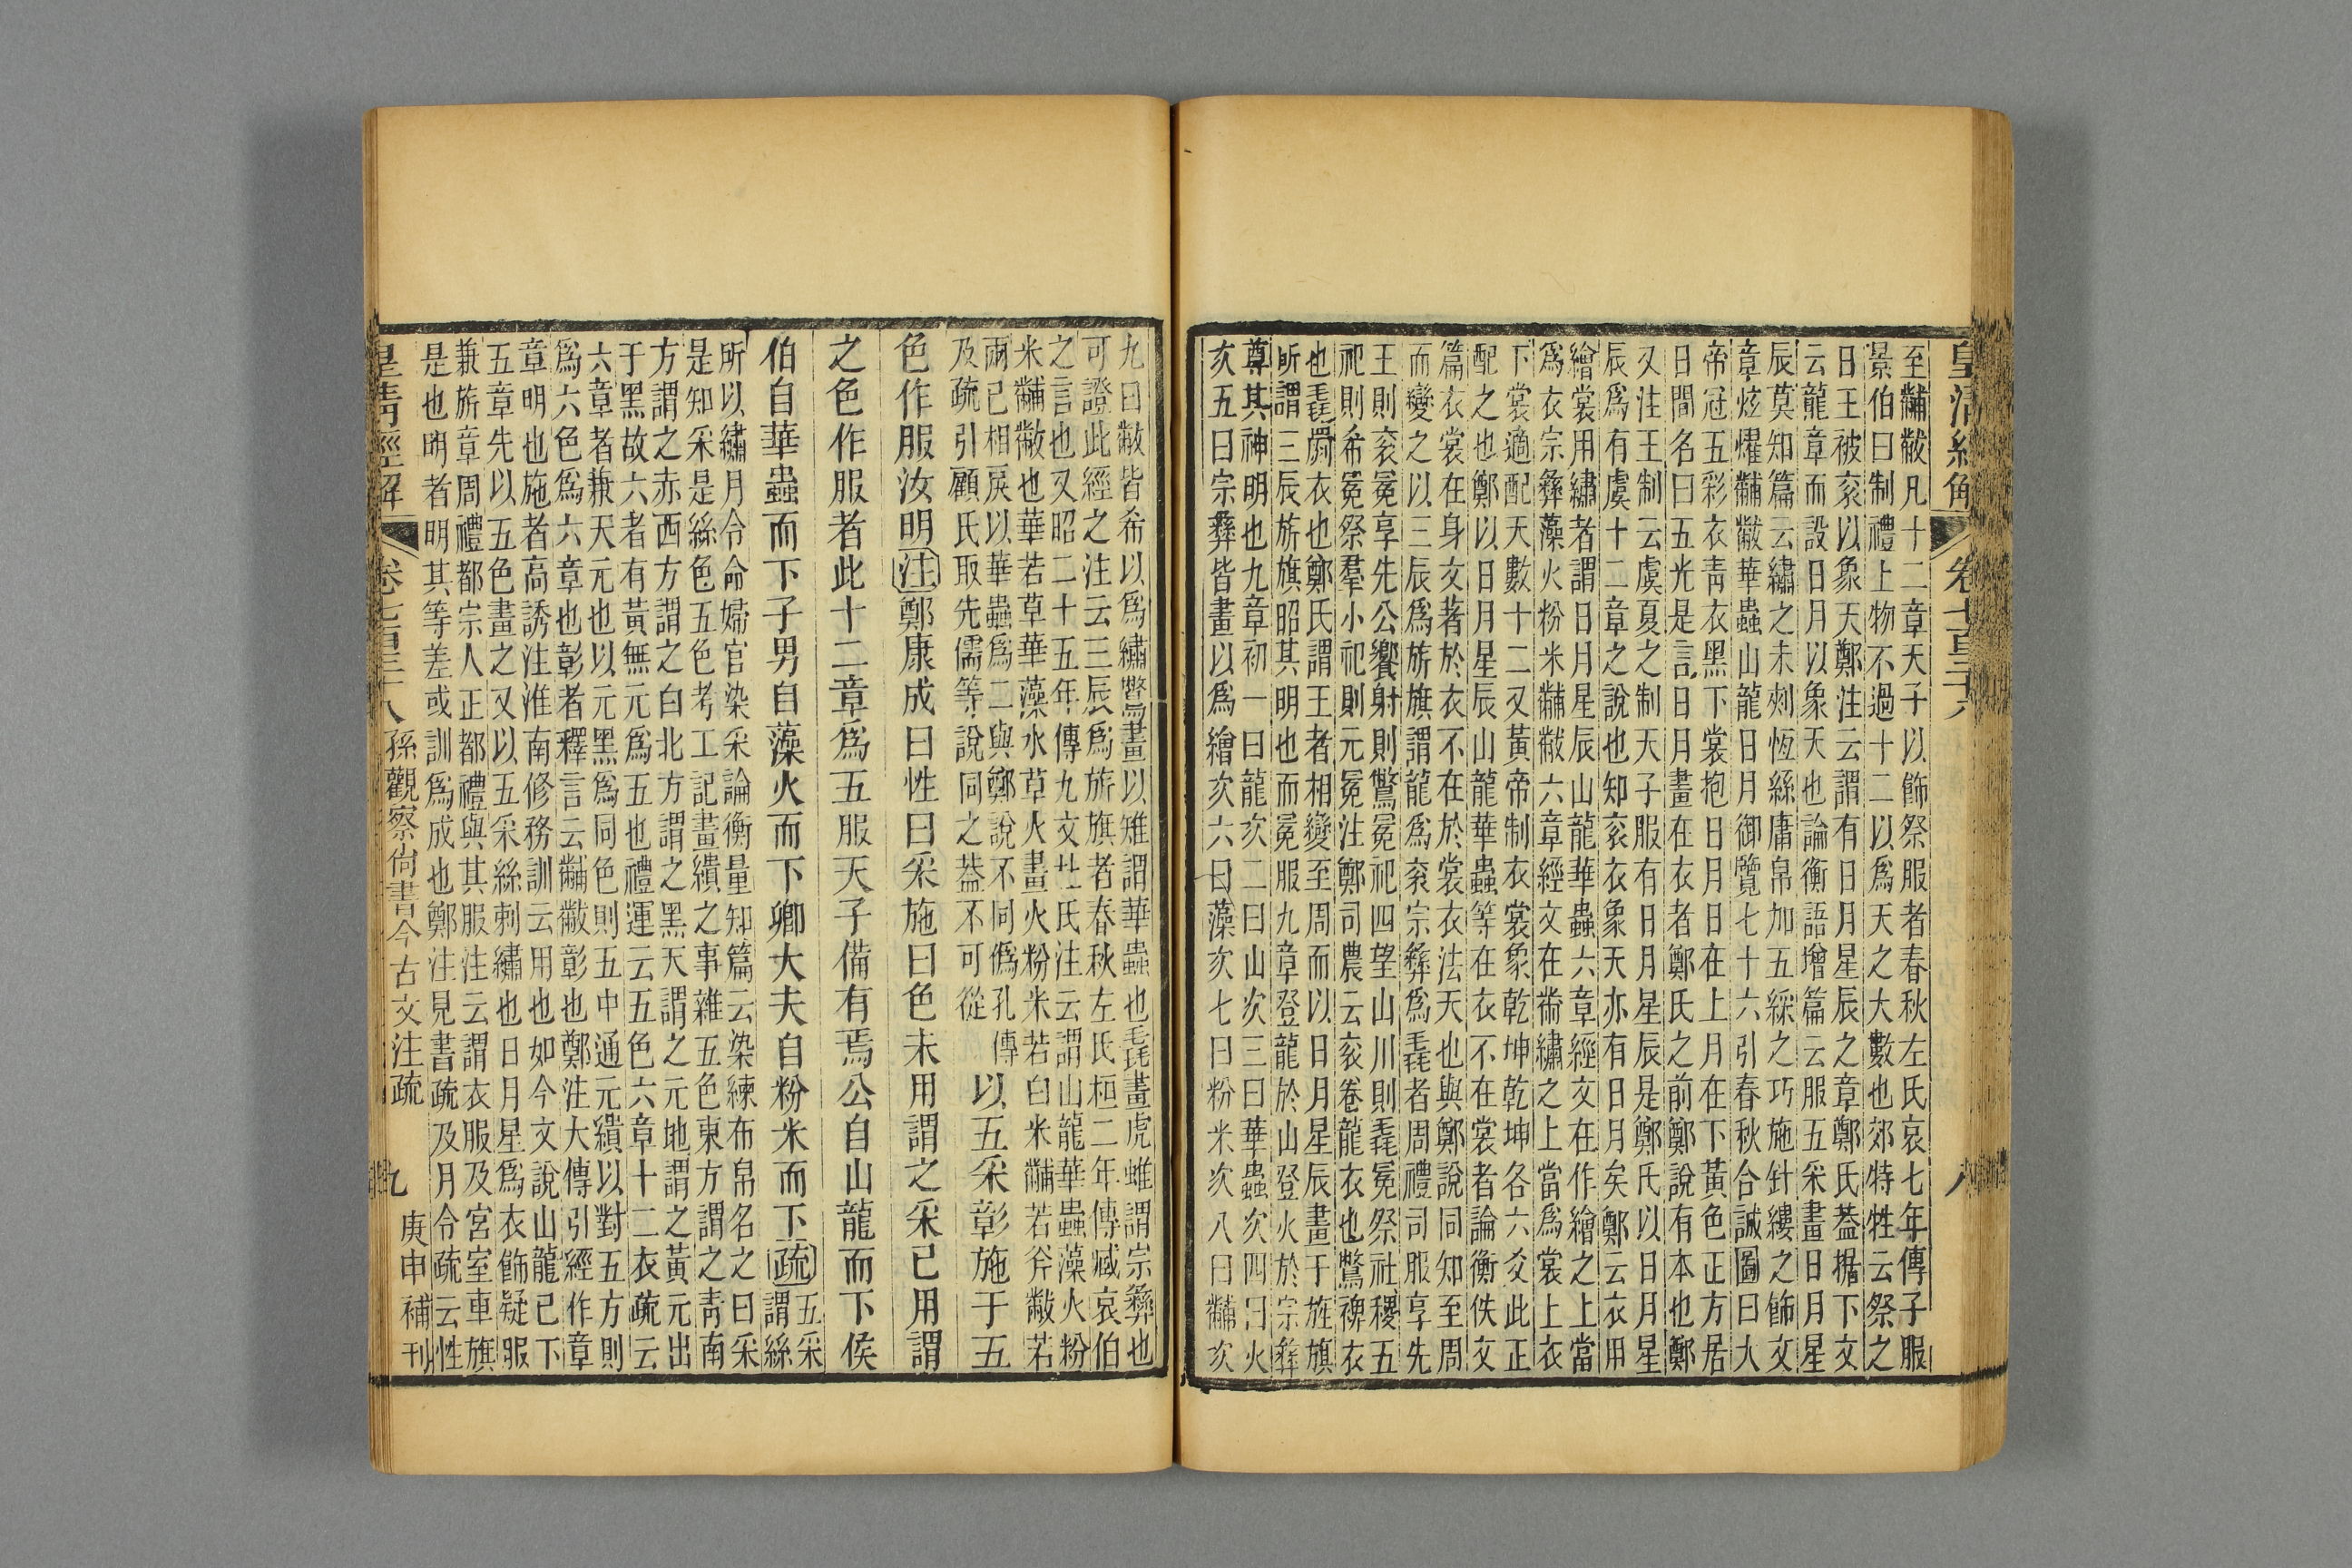 皇清經解 卷七百三十八 八
至黼黻凡十二章天子以飾祭服者春秋左氏哀七年傳子服
景伯曰制禮上物不過十二以爲天之大數也郊特牲云祭之
日王被袞以象天鄭注云謂有日月星辰之章鄭氏葢據下文
云龍章而設日月以象天也論衡語增篇云服五采畫日月星
辰莫知篇云繡之未刺恆絲庸帛加五綵之巧施針縷之飾文
章炫燿黼黻華蟲山龍日月御覽七十六引春秋合誠圖曰大
帝冠五彩衣靑衣黑下裳抱日月日在上月在下黃色正方居
日間名曰五光是言日月畫在衣者鄭氏之前鄭說有本也鄭
又注王制云虞夏之制天子服有日月星辰是鄭氏以日月星
辰爲有虞十二章之說也知袞衣象天亦有日月矣鄭云衣用
繪裳用繡者謂日月星辰山龍華蟲六章經文在作繪之上當
爲衣宗彝藻火粉米黼黻六章經文在絺繡之上當爲裳上衣
下裳適配天數十二又黃帝制衣裳象乾坤乾坤各六爻此正
配之也鄭以日月星辰山龍華蟲等在衣不在裳者論衡佚文
篇衣裳在身文著於衣不在於裳衣法天也與鄭說同知至周
而變之以三辰爲旂旗謂龍爲袞宗彝爲毳者周禮司服享先
王則袞冕享先公饗射則鷩冕祀四望山川則毳冕祭社稷五
祀則希冕祭羣小祀則元冕注鄭司農云袞卷龍衣也鷩裨衣
也毳罽衣也鄭氏謂王者相變至周而以日月星辰畫于旌旗
所謂三辰旂旗昭其明也而冕服九章登龍於山登火於宗彝
尊其神明也九章初一曰龍次二曰山次三曰華蟲次四曰火
次五曰宗彝皆畫以爲繪次六曰藻次七曰粉米次八曰黼次
九曰黻皆希以爲繡鷩畫以雉謂華蟲也毳畫虎蜼謂宗彝也
可證此經之注云三辰爲旂旗者春秋左氏桓二年傳臧哀伯
之言也又昭二十五年傳九文杜氏注云謂山龍華蟲藻火粉
米黼黻也華若草華藻水草火畫火粉米若白米黼若斧黻若
兩已相戾以華蟲爲二與鄭說不同僞孔傳
及疏引顧氏取先儒等說同之葢不可從
以五采彰施于五
色作服汝明注鄭康成曰性曰采施曰色未用謂之采已用謂
之色作服者此十二章爲五服天子備有焉公自山龍而下侯
伯自華蟲而下子男自藻火而下卿大夫自粉米而下疏
五采
謂絲
所以繡月令命婦官染采論衡量知篇云染練布帛名之曰采
是知采是絲色五色考工記畫繢之事雜五色東方謂之靑南
方謂之赤西方謂之白北方謂之黑天謂之元地謂之黃元出
于黑故六者有黃無元爲五也禮運云五色六章十二衣疏云
六章者兼天元也以元黑爲同色則五中通元繢以對五方則
爲六色爲六章也彰者釋言云黼黻彰也鄭注大傳引經作章
章明也施者高誘注淮南修務訓云用也如今文說山龍已下
五章先以五色畫之又以五采絲刺繡也日月星爲衣飾疑服
兼旂章周禮都宗人正都禮與其服注云謂衣服及宮室車旗
是也明者明其等差或訓爲成也鄭注見書疏及月令疏云性
皇淸經解 卷七百三十八 孫觀察尙書今古文注疏 九 庚申補刊